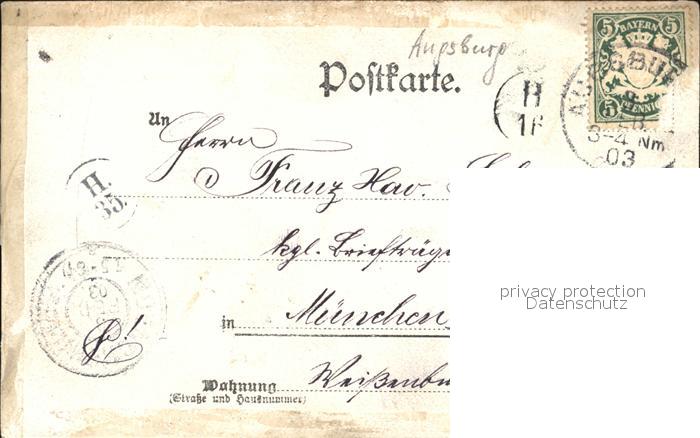 Augsburg
Postkarte.
5 BAYERN 5
5 PFENNIG
AUGSBURG
3-4 Nm
03
H
16
An
Herrn
Franz Xav.
H.
35.
kgl. Briefträge
in München
Weißenbu
Wohnung
(Straße und Hausnummer)
privacy protection
Datenschutz